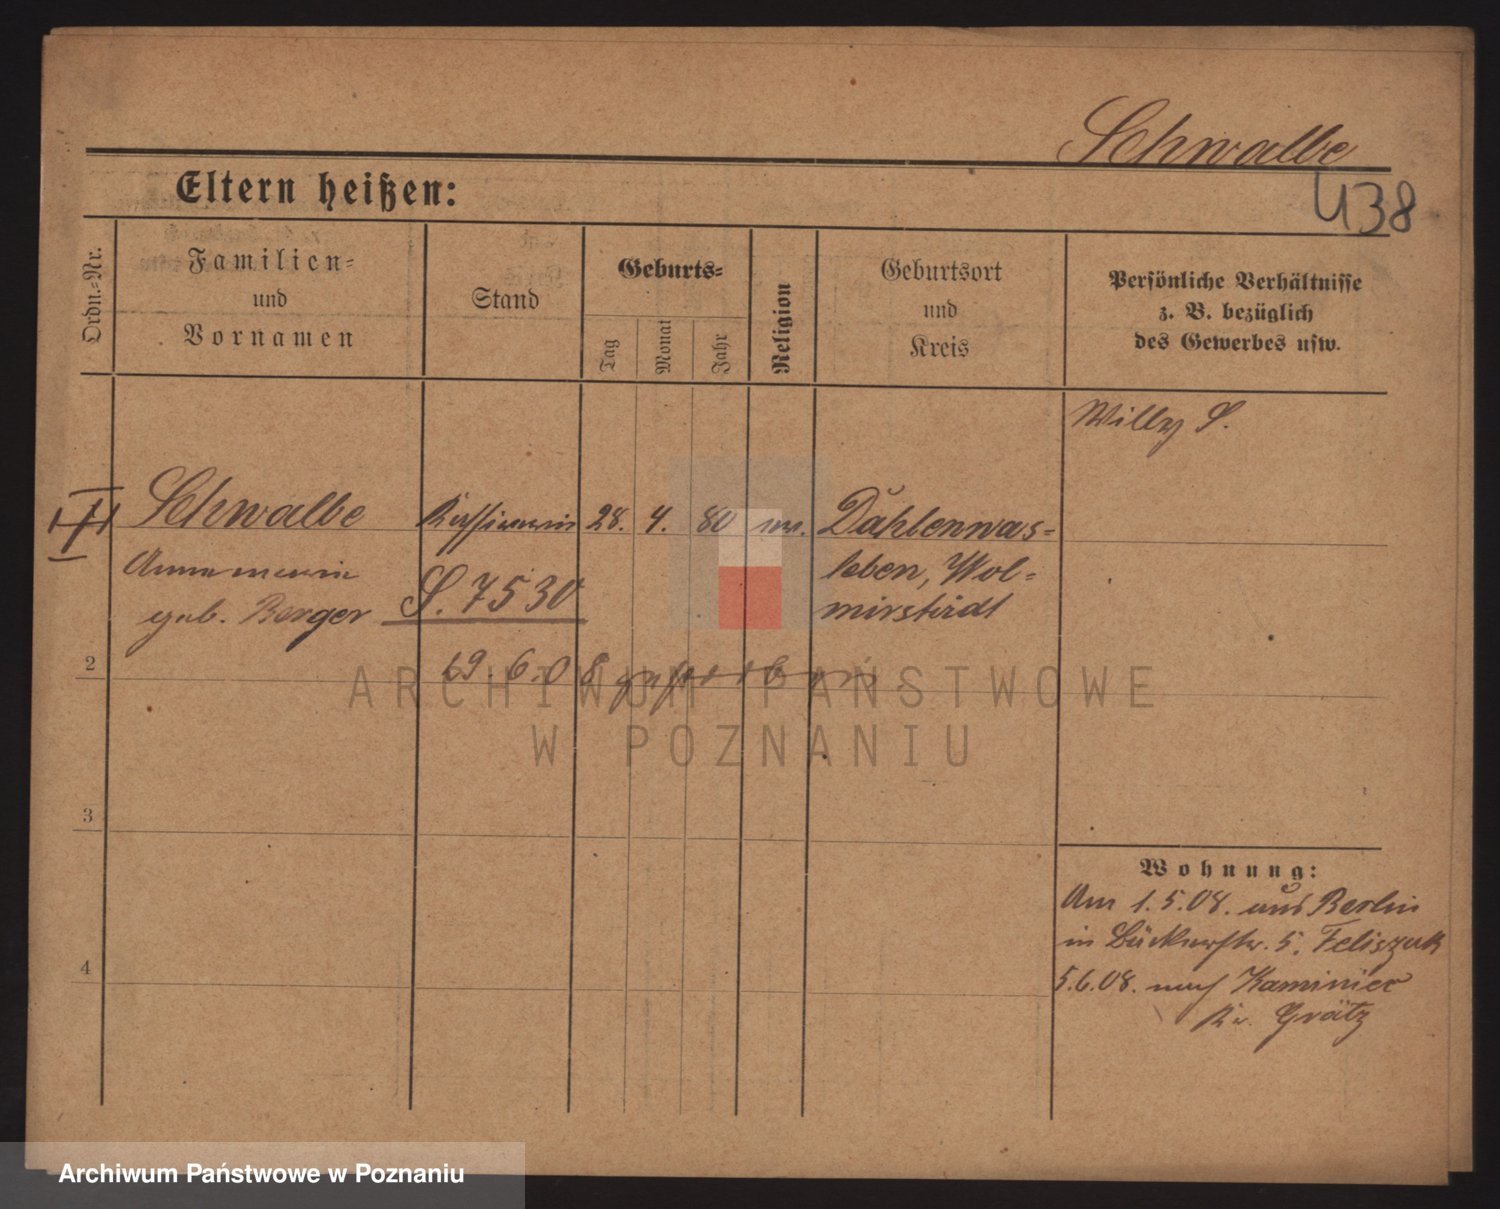 Schwalbe
438
Eltern heißen:
Ordn.-Nr.
Familien-
und
Vornamen
Stand
Geburts-
Tag
Monat
Jahr
Religion
Geburtsort
und
Kreis
Persönliche Verhältnisse
z. B. bezüglich
des Gewerbes usw.
Willy S.
Schwalbe
28. 4. 80
Dahlenwas-
Annamarie
S. 7530
leben, Wol-
geb. Berger
mirstedt
2
19.6.08 gestorben
ARCHIWUM PAŃSTWOWE
W POZNANIU
3
Wohnung:
Am 1.5.08. aus Berlin
in Bäckerstr. 5. Feliszak
4
5.6.08. nach Kaminiec
Kr. Grätz
Archiwum Państwowe w Poznaniu